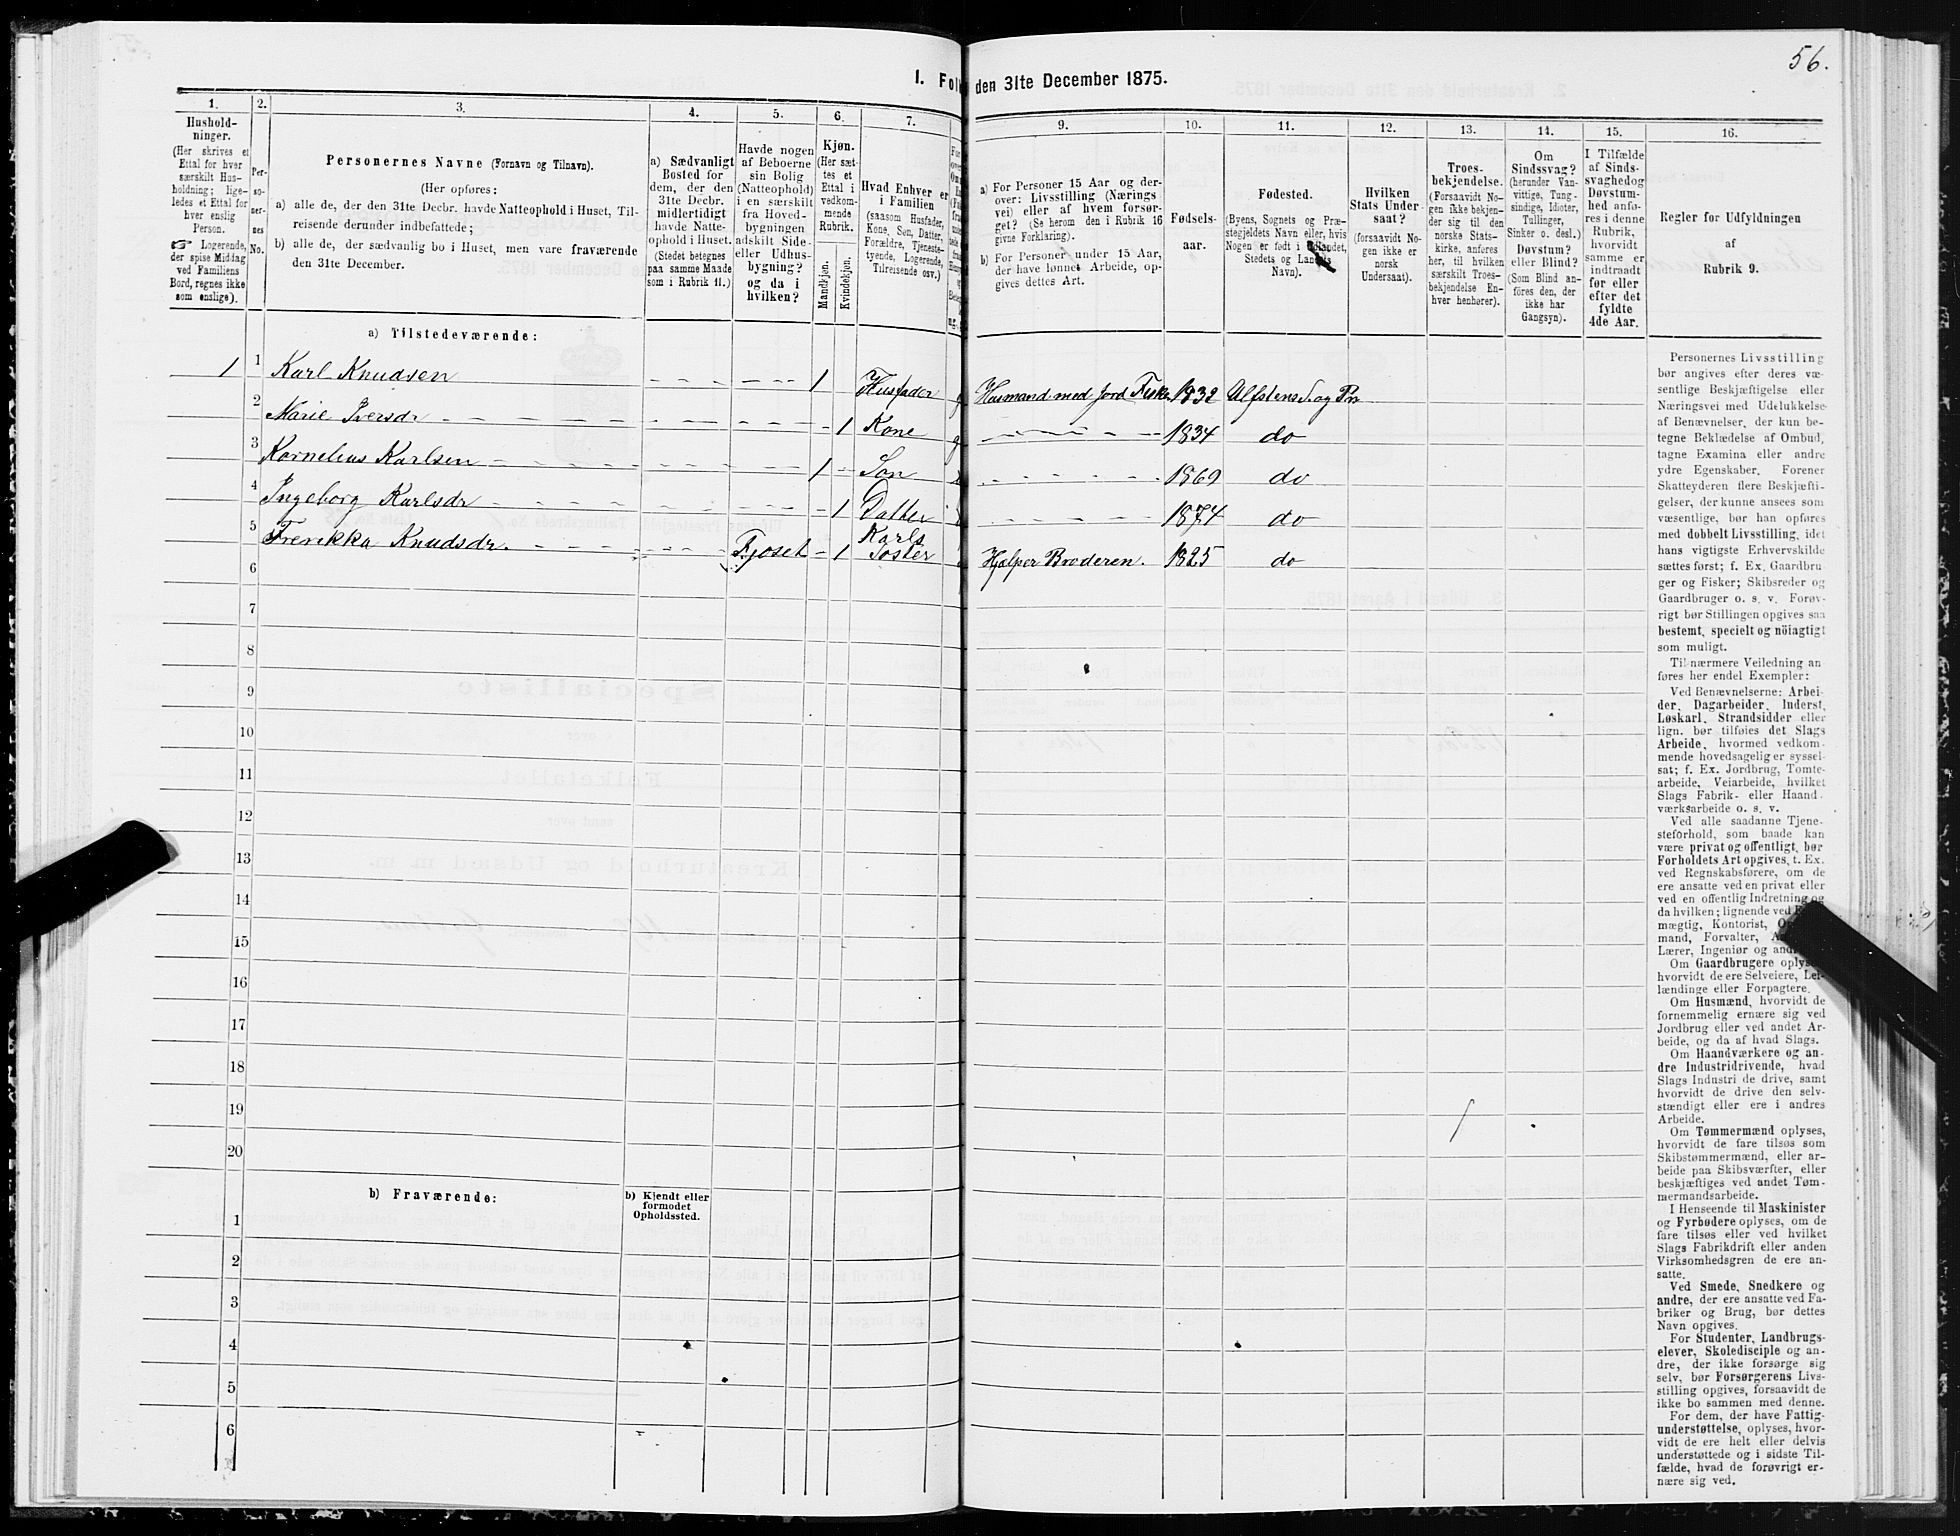 56.
I. Fol den 31te December 1875.
1. 2. 3. 4. 5. 6. 7. 9. 10. 11. 12. 13. 14. 15. 16.
Hushold-
ninger.
(Her skrives et
Ettal for hver
særskilt Hus-
holdning; lige-
ledes et Ettal for
hver enslig
Person.
☞ Logerende,
der spise Middag
ved Familiens
Bord, regnes ikke
som enslige).
Per-
so-
ner-
nes
No.
Personernes Navne (Fornavn og Tilnavn).
(Her opføres:
a) alle de, der den 31te Decbr. havde Natteophold i Huset, Til-
reisende derunder indbefattede;
b) alle de, der sædvanlig bo i Huset, men vare fraværende
den 31te December.
a) Sædvanligt
Bosted for
dem, der den
31te Decbr.
midlertidigt
havde Natte-
ophold i Huset.
(Stedet betegnes
paa samme Maade
som i Rubrik 11.)
Havde nogen
af Beboerne
sin Bolig
(Natteophold)
i en særskilt
fra Hoved-
bygningen
adskilt Side-
eller Udhus-
bygning?
og da i
hvilken?
Kjøn.
(Her sæt-
tes et
Ettal i
vedkom-
mende
Rubrik.
Mandkjøn.
Kvindekjøn.
Hvad Enhver er
i Familien
(saasom Husfader,
Kone, Søn, Datter,
Forældre, Tjeneste-
tyende, Logerende,
Tilreisende osv.)
a) For Personer 15 Aar og der-
over: Livsstilling (Nærings
vei) eller af hvem forsør-
get? (Se herom den i Rubrik 16
givne Forklaring).
b) For Personer under 15 Aar,
der have lønnet Arbeide, op-
gives dettes Art.
Fødsels-
aar.
Fødested.
(Byens, Sognets og Præ-
stegjeldets Navn eller, hvis
Nogen er født i Udlandet,
Stedets og Landets
Navn).
Hvilken
Stats Under-
saat?
(forsaavidt No-
gen ikke er
norsk
Undersaat).
Troes-
bekjendelse.
(Forsaavidt No-
gen ikke bekjen-
der sig til den
norske Stats-
kirke, anføres
her, til hvilken
særskilt Troes-
bekjendelse En-
hver henhører).
Om
Sindssvag?
(herunder Van-
vittige, Tung-
sindige, Idioter,
Tullinger,
Sinker o. desl.)
Døvstum?
eller Blind?
(Som Blind an-
føres den, der
ikke har
Gangsyn).
I Tilfælde
af Sinds-
svaghed og
Døvstum-
hed anfø-
res i denne
Rubrik,
hvorvidt
samme er
indtraadt
før eller
efter det
fyldte
4de Aar.
Regler for Udfyldningen
af
Rubrik 9.
a) Tilstedeværende:
1 1 Karl Knudsen 1 Husfader g Husmand med Jord Fisker 1832 Ulfstens S. og Pr
2 Marie Iversdr 1 Kone g 1834 do
3 Kornelius Karlsen 1 Søn 1869 do
4 Ingeborg Karlsdr 1 Datter 1874 do
5 Frerikka Knudsdr. Fjøset 1 Karls Søster Hjælper Broderen. 1825 do
6
7
8
9
10
11
12
13
14
15
16
17
18
19
20
b) Fraværende:
b) Kjendt eller
formodet
Opholdssted.
1
2
3
4
5
6
Personernes Livsstilling
bør angives efter deres væ-
sentlige Beskjæftigelse eller
Næringsvei med Udelukkelse
af Benævnelser, der kun be-
tegne Beklædelse af Ombud,
tagne Examina eller andre
ydre Egenskaber. Forener
Skatteyderen flere Beskjæfti-
gelser, der kunne ansees som
væsentlige, bør han opføres
med dobbelt Livsstilling, idet
hans vigtigste Erhvervskilde
sættes først; f. Ex. Gaardbru-
ger og Fisker; Skibsreder og
Gaardbruger o. s. v. Forøv-
rigt bør Stillingen opgives saa
bestemt, specielt og nöiagtigt
som muligt.
Til nærmere Veiledning an-
føres her endel Exempler:
Ved Benævnelserne: Arbei-
der, Dagarbeider, Inderst,
Løskarl, Strandsidder eller
lign. bør tilføies det Slags
Arbeide, hvormed vedkom-
mende hovedsagelig er syssel-
sat; f. Ex. Jordbrug, Tomte-
arbeide, Veiarbeide, hvilket
Slags Fabrik- eller Haand-
værksarbeide o. s. v.
Ved alle saadanne Tjene-
steforhold, som baade kan
være privat og offentligt, bør
Forholdets Art opgives, t. Ex.
ved Regnskabsførere, om de
ere ansatte ved en privat eller
ved en offentlig Indretning og
da hvilken; lignende ved
mægtig, Kontorist,
mand, Forvalter,
Lærer, Ingeniør og
Om Gaardbrugere oplyses,
hvorvidt de ere Selveiere, Lei-
lændinge eller Forpagtere.
Om Husmænd, hvorvidt de
fornemmelig ernære sig ved
Jordbrug eller ved andet Ar-
beide, og da af hvad Slags.
Om Haandværkere og an-
dre Industridrivende, hvad
Slags Industri de drive, samt
hvorvidt de drive den selv-
stændigt eller ere i andres
Arbeide.
Om Tømmermænd oplyses,
hvorvidt de fare tilsøs som
Skibstømmermænd, eller ar-
beide paa Skibsværfter, eller
beskjæftiges ved andet Tøm-
mermandsarbeide.
I Henseende til Maskinister
og Fyrbødere oplyses, om de
fare tilsøs eller ved hvilket
Slags Fabrikdrift eller anden
Virksomhedsgren de ere an-
satte.
Ved Smede, Snedkere og
andre, der ere ansatte ved Fa-
briker og Brug, bør dettes
Navn opgives.
For Studenter, Landbrugs-
elever, Skoledisciple og an-
dre, der ikke forsørge sig
selv, bør Forsørgerens Livs-
stilling opgives, forsaavidt de
ikke bo sammen med denne.
For dem, der have Fattig-
understøttelse, oplyses, hvor-
vidt de ere helt eller delvis
understøttede og i sidste Til-
fælde, hvad de forøvrigt er-
nære sig ved.